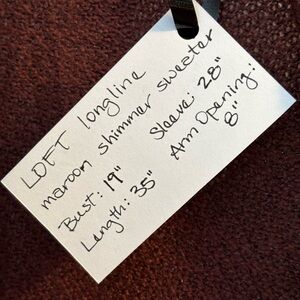 LOFT longline
maroon shimmer sweeter
Bust: 19" Sleeve: 28"
Length: 35" Arm Opening:
8"